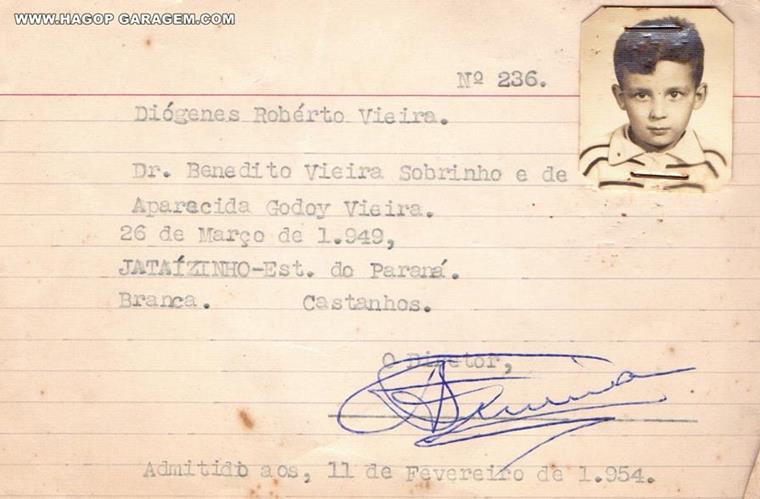 WWW.HAGOP GARAGEM.COM
Nº 236.
Diógenes Robérto Vieira.
Dr. Benedito Vieira Sobrinho e de
Aparecida Godoy Vieira.
26 de Março de 1.949,
JATAÍZINHO-Est. do Paraná.
Branca. Castanhos.
O Diretor,
Admitido aos, 11 de Fevereiro de 1.954.